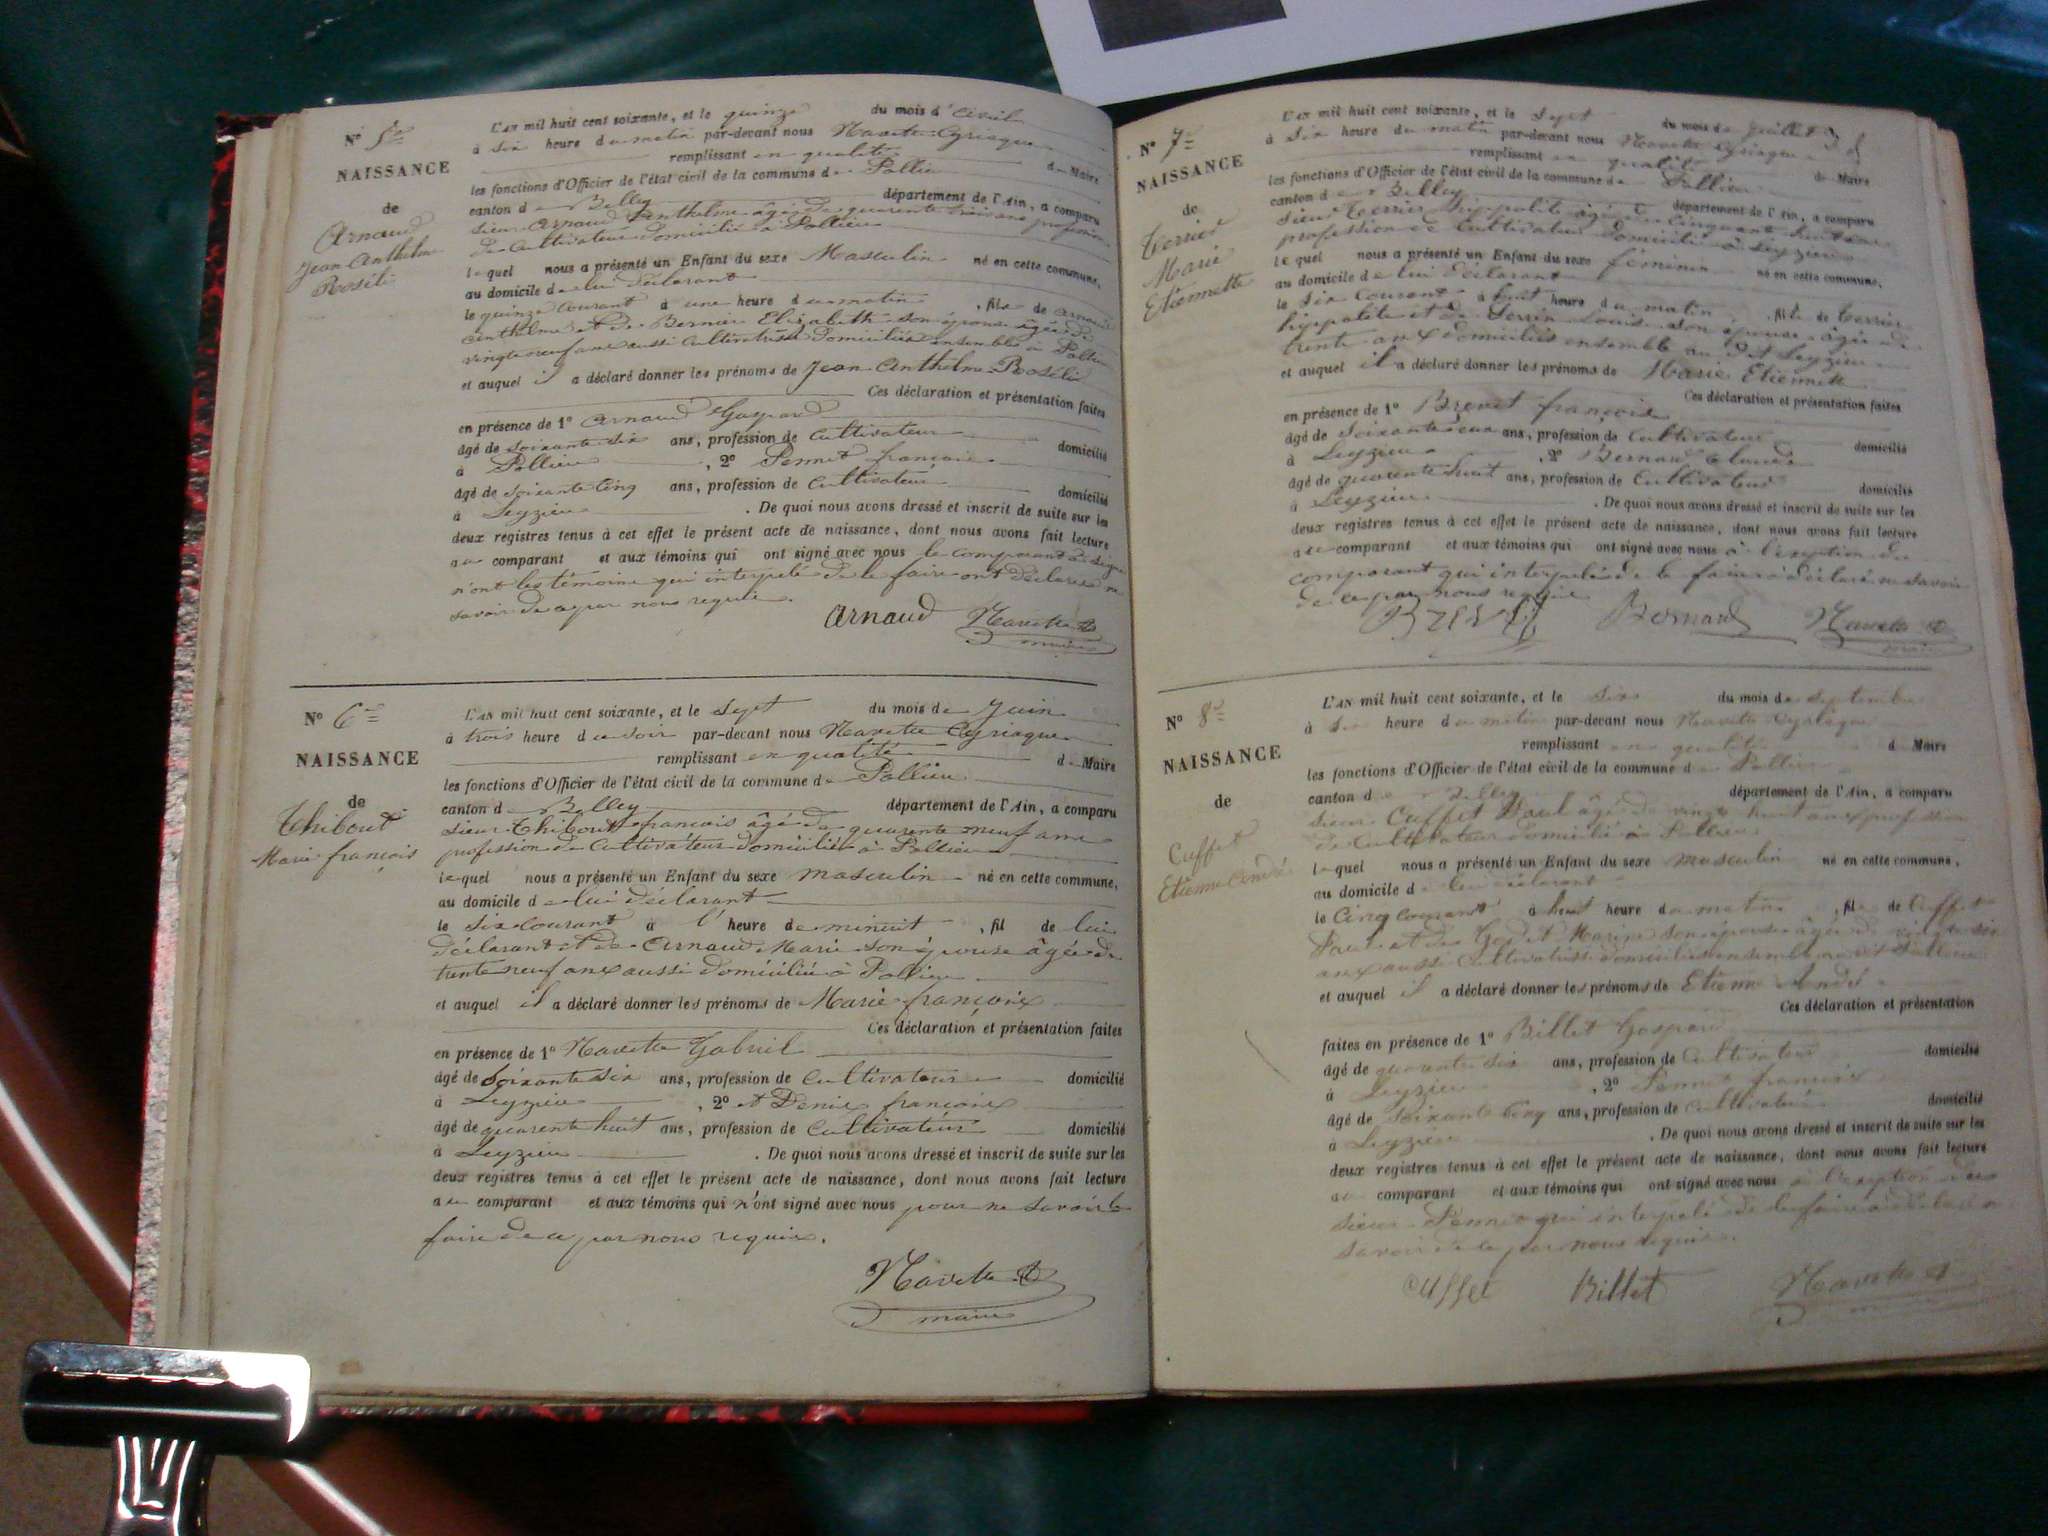 N° 5e
NAISSANCE
de
Arnaud
Jean Anthelme
Rosélie
L'AN mil huit cent soixante, et le quinze du mois d'avril
à six heure du matin par-devant nous Navette Cyriaque
remplissant en qualité de Maire
les fonctions d'Officier de l'état civil de la commune de Pollieu
canton de Belley département de l'Ain, a comparu
sieur Arnaud Anthelme âgé de quarente trois ans profession
de Cultivateur domicilié à Pollieu
lequel nous a présenté un Enfant du sexe Masculin né en cette commune,
au domicile de lui déclarant
le quinze courant à une heure du matin, fils de Arnaud
Anthelme et de Bernier Elizabeth son épouse âgée de
vingt neuf ans aussi cultivatrice domiciliés ensembles à Pollieu
et auquel il a déclaré donner les prénoms de Jean Anthelme Rosélie
Ces déclaration et présentation faites
en présence de 1° Arnaud Gaspard
âgé de soixante six ans, profession de Cultivateur domicilié
à Pollieu, 2° Pennet françois
âgé de soixante cinq ans, profession de Cultivateur domicilié
à Leyzieu. De quoi nous avons dressé et inscrit de suite sur les
deux registres tenus à cet effet le présent acte de naissance, dont nous avons fait lecture
au comparant et aux témoins qui ont signé avec nous le comparant à signé
n'ont les témoins qui interpelé de le faire ont déclarés ne
savoir de ce par nous requie.
Arnaud Navette
maire
N° 6e
NAISSANCE
de
Thibout
Marie françois
L'AN mil huit cent soixante, et le Sept du mois de Juin
à trois heure du soir par-devant nous Navette Cyriaque
remplissant en qualité de Maire
les fonctions d'Officier de l'état civil de la commune de Pollieu
canton de Belley département de l'Ain, a comparu
sieur Thibout françois âgé de quarente neuf ans
profession de Cultivateur domicilié à Pollieu
lequel nous a présenté un Enfant du sexe masculin né en cette commune,
au domicile de lui déclarant
le six courant à l'heure de minuit, fil de lui
déclarant et de Arnaud Marie son épouse âgée de
trente neuf ans aussi domiciliée à Pollieu
et auquel il a déclaré donner les prénoms de Marie françois
Ces déclaration et présentation faites
en présence de 1° Navette Gabriel
âgé de Soixante six ans, profession de Cultivateur domicilié
à Leyzieu, 2° et Denis françois
âgé de quarente huit ans, profession de Cultivateur domicilié
à Leyzieu. De quoi nous avons dressé et inscrit de suite sur les
deux registres tenus à cet effet le présent acte de naissance, dont nous avons fait lecture
au comparant et aux témoins qui n'ont signé avec nous pour ne savoir le
faire de ce par nous requie.
Navette
maire
N° 7e
NAISSANCE
de
Terrier
Marie
Etiennette
L'AN mil huit cent soixante, et le Sept du mois de Juillet
à six heure du matin par-devant nous Navette Cyriaque
remplissant en qualité de Maire
les fonctions d'Officier de l'état civil de la commune de Pollieu
canton de Belley département de l'Ain, a comparu
sieur Terrier hippolite âgé de cinquant huit ans
profession de Cultivateur domicilié à Leyzieu
lequel nous a présenté un Enfant du sexe féminin né en cette commune,
au domicile de lui déclarant
le six courant à huit heure du matin, fille de Terrier
hippolite et de son épouse âgée de
trente ans domiciliés ensemble au dit Leyzieu
et auquel il a déclaré donner les prénoms de Marie Etiennette
Ces déclaration et présentation faites
en présence de 1° Brevet françois
âgé de Soixante ans, profession de Cultivateur domicilié
à Leyzieu, 2° Bernard Claude
âgé de quarente huit ans, profession de Cultivateur domicilié
à Leyzieu. De quoi nous avons dressé et inscrit de suite sur les
deux registres tenus à cet effet le présent acte de naissance, dont nous avons fait lecture
au comparant et aux témoins qui ont signé avec nous à l'exeption du
comparant qui interpelé de le faire à déclaré ne savoir
de ce par nous requie
Brevet Bernard Navette
maire
N° 8e
NAISSANCE
de
Cuffet
Etienne André
L'AN mil huit cent soixante, et le six du mois de Septembre
à six heure du matin par-devant nous Navette Cyriaque
remplissant en qualité de Maire
les fonctions d'Officier de l'état civil de la commune de Pollieu
canton de Belley département de l'Ain, a comparu
sieur Cuffet Paul âgé de vingt huit ans profession
de Cultivateur domicilié à Pollieu
lequel nous a présenté un Enfant du sexe masculin né en cette commune,
au domicile de lui déclarant
le Cinq courant à huit heure du matin, fils de Cuffet
Paul et de Godet Marie son épouse âgée de vingt six
ans aussi Cultivatrice domiciliés ensemble au dit Pollieu
et auquel il a déclaré donner les prénoms de Etienne André
Ces déclaration et présentation
faites en présence de 1° Billet Gaspard
âgé de quarante six ans, profession de Cultivateur domicilié
à Leyzieu, 2° Pennet françois
âgé de Soixante Cinq ans, profession de Cultivateur domicilié
à Leyzieu. De quoi nous avons dressé et inscrit de suite sur les
deux registres tenus à cet effet le présent acte de naissance, dont nous avons fait lecture
au comparant et aux témoins qui ont signé avec nous à l'exeption du
sieur Pennet qui interpelé de le faire à déclaré ne
savoir de ce par nous requie.
Cuffet Billet Navette